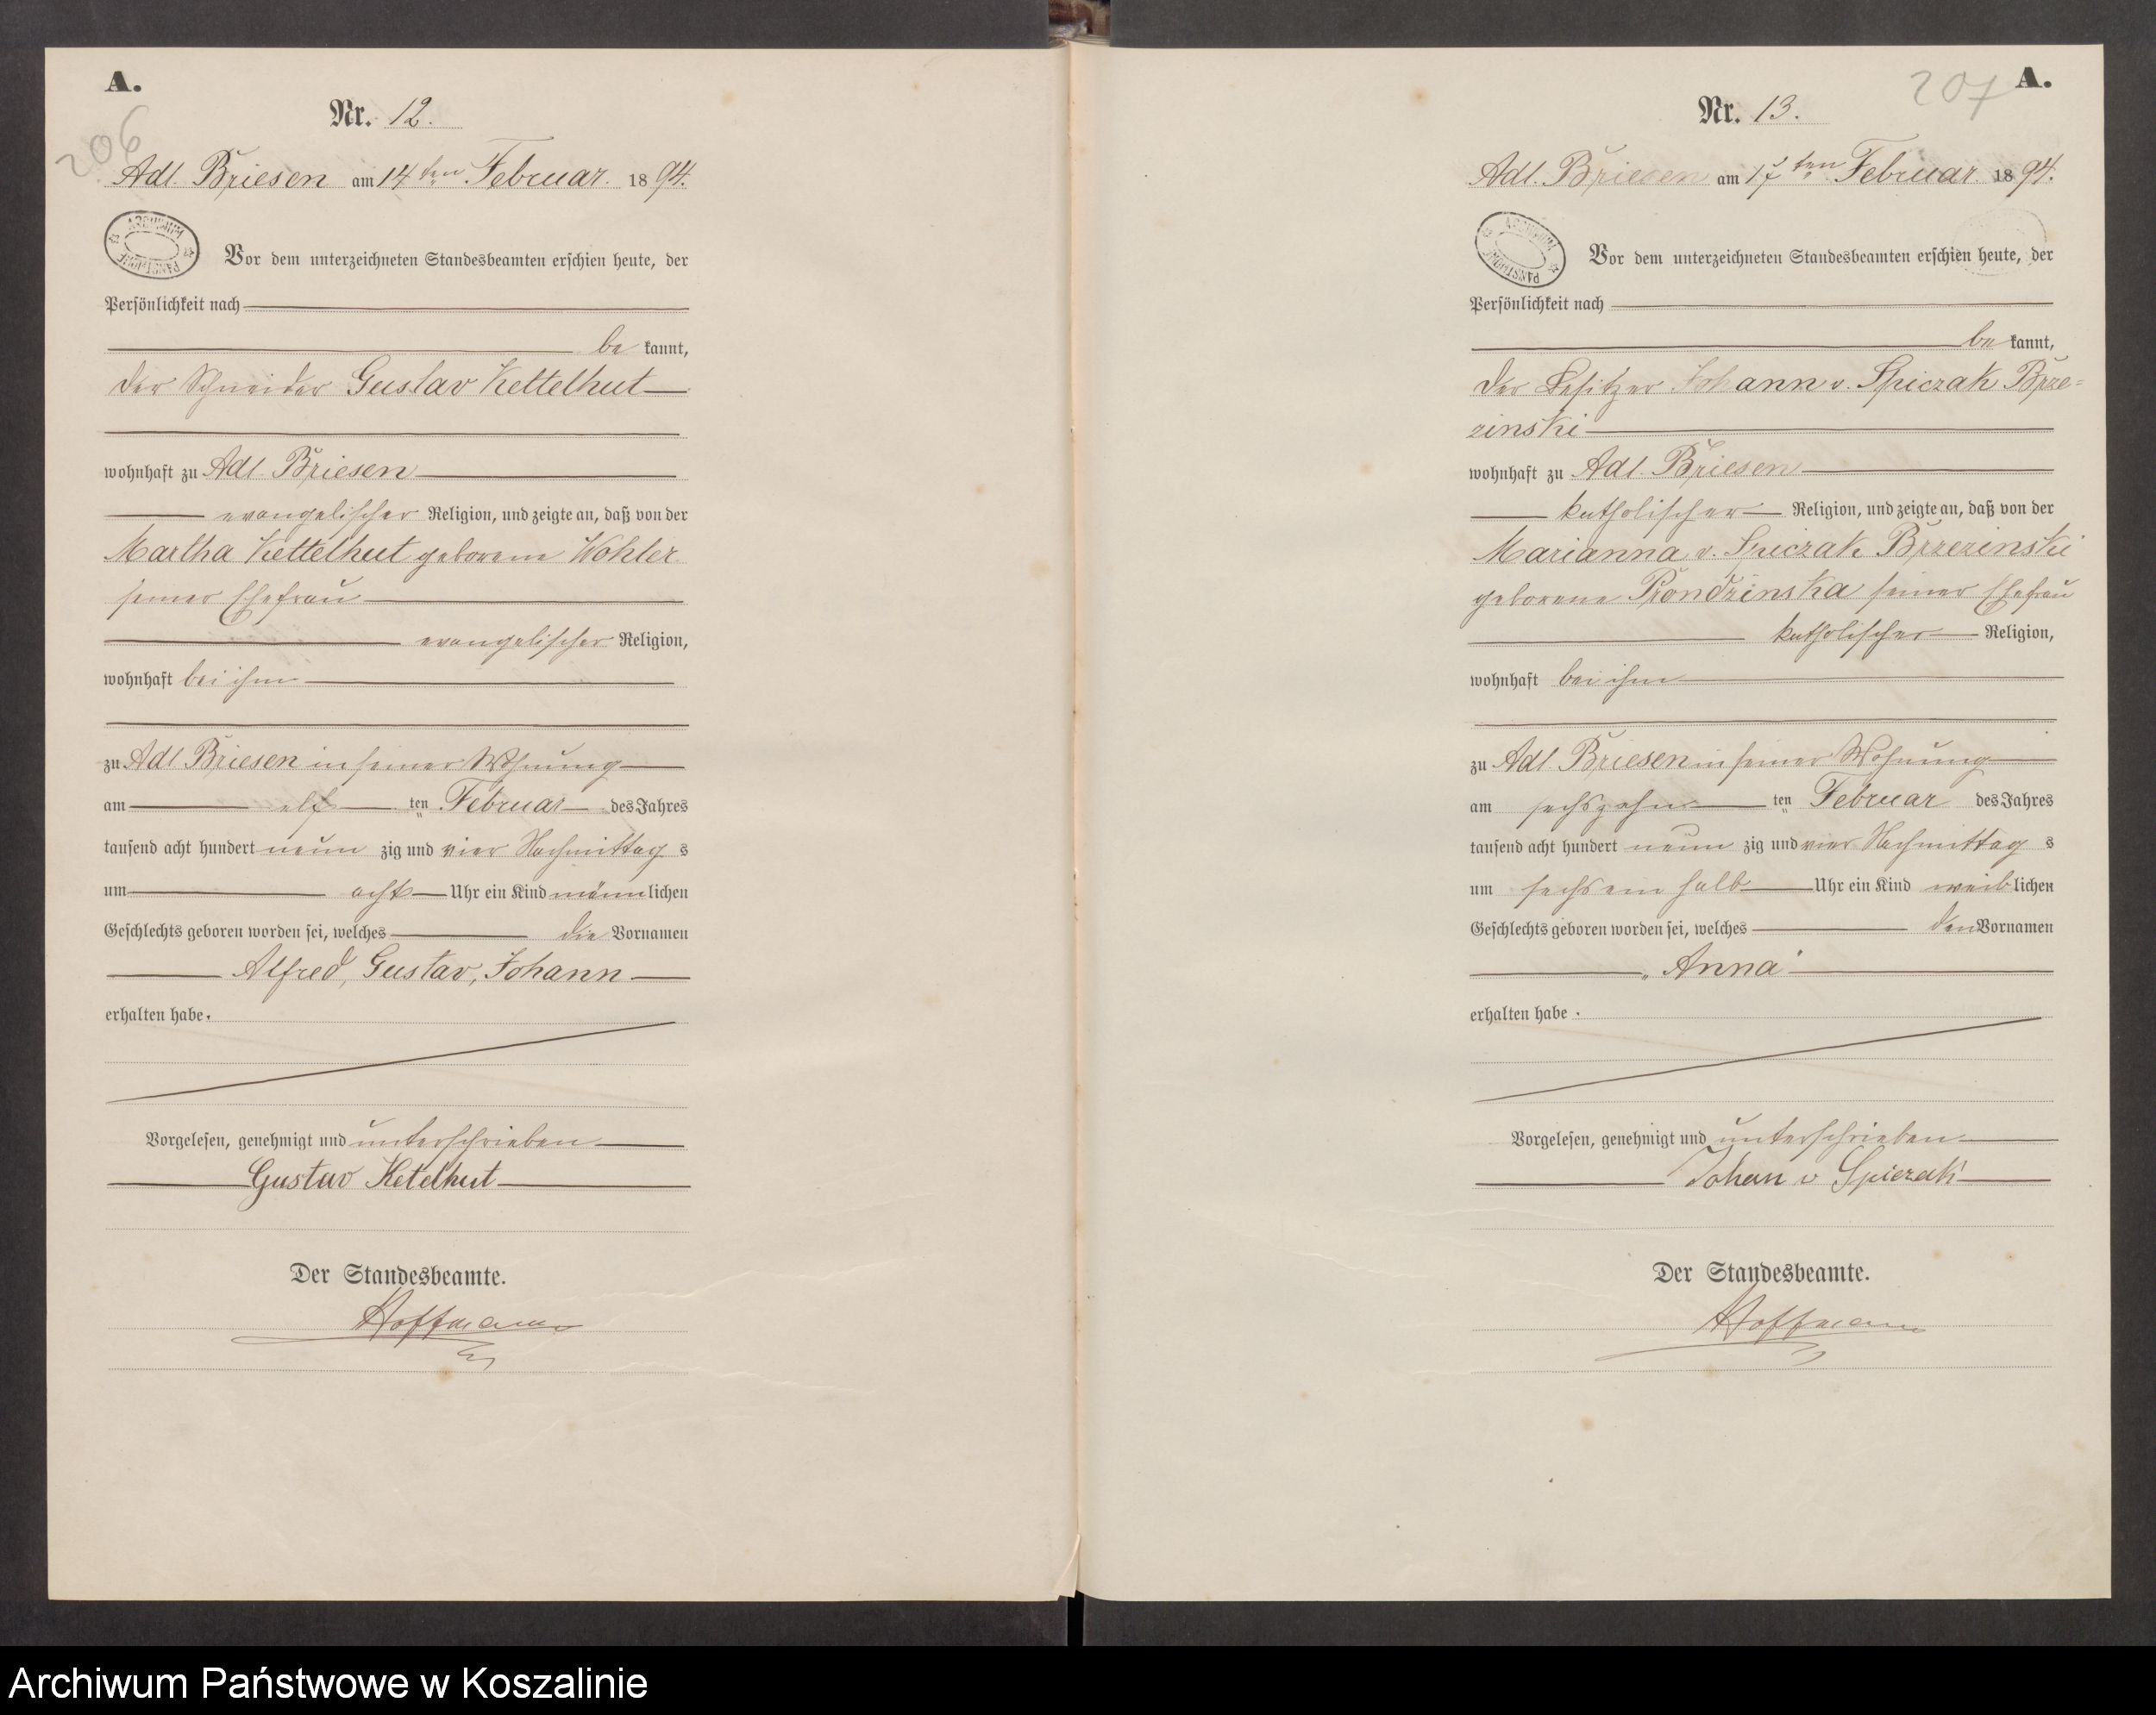 A.
206
Nr. 12.
Adl. Briesen am 14ten Februar. 1894.
Vor dem unterzeichneten Standesbeamten erschien heute, der
Persönlichkeit nach
be kannt,
der Schneider Gustav Kettelhut
wohnhaft zu Adl. Briesen
evangelischer Religion, und zeigte an, daß von der
Martha Kettelhut geborene Wohler
seiner Ehefrau
evangelischer Religion,
wohnhaft bei ihm
zu Adl Briesen in seiner Wohnung
am elf ten Februar des Jahres
tausend acht hundert neun zig und vier Nachmittag s
um acht Uhr ein Kind männlichen
Geschlechts geboren worden sei, welches die Vornamen
Alfred, Gustav, Johann
erhalten habe.
Vorgelesen, genehmigt und unterschrieben
Gustav Ketelhut
Der Standesbeamte.
Hoffmann
207
A.
Nr. 13.
Adl. Briesen am 17ten Februar. 1894.
Vor dem unterzeichneten Standesbeamten erschien heute, der
Persönlichkeit nach
be kannt,
der Besitzer Johann v. Spiczak Brze=
zinski
wohnhaft zu Adl. Briesen
katholischer Religion, und zeigte an, daß von der
Marianna v. Spiczak Brzezinski
geborene Prondzinska seiner Ehefrau
katholischer Religion,
wohnhaft bei ihm
zu Adl. Briesen in seiner Wohnung
am sechszehn ten Februar des Jahres
tausend acht hundert neun zig und vier Nachmittag s
um sechs ein halb Uhr ein Kind weiblichen
Geschlechts geboren worden sei, welches den Vornamen
„Anna"
erhalten habe.
Vorgelesen, genehmigt und unterschrieben
Johan v Spiczak
Der Standesbeamte.
Hoffmann
Archiwum Państwowe w Koszalinie